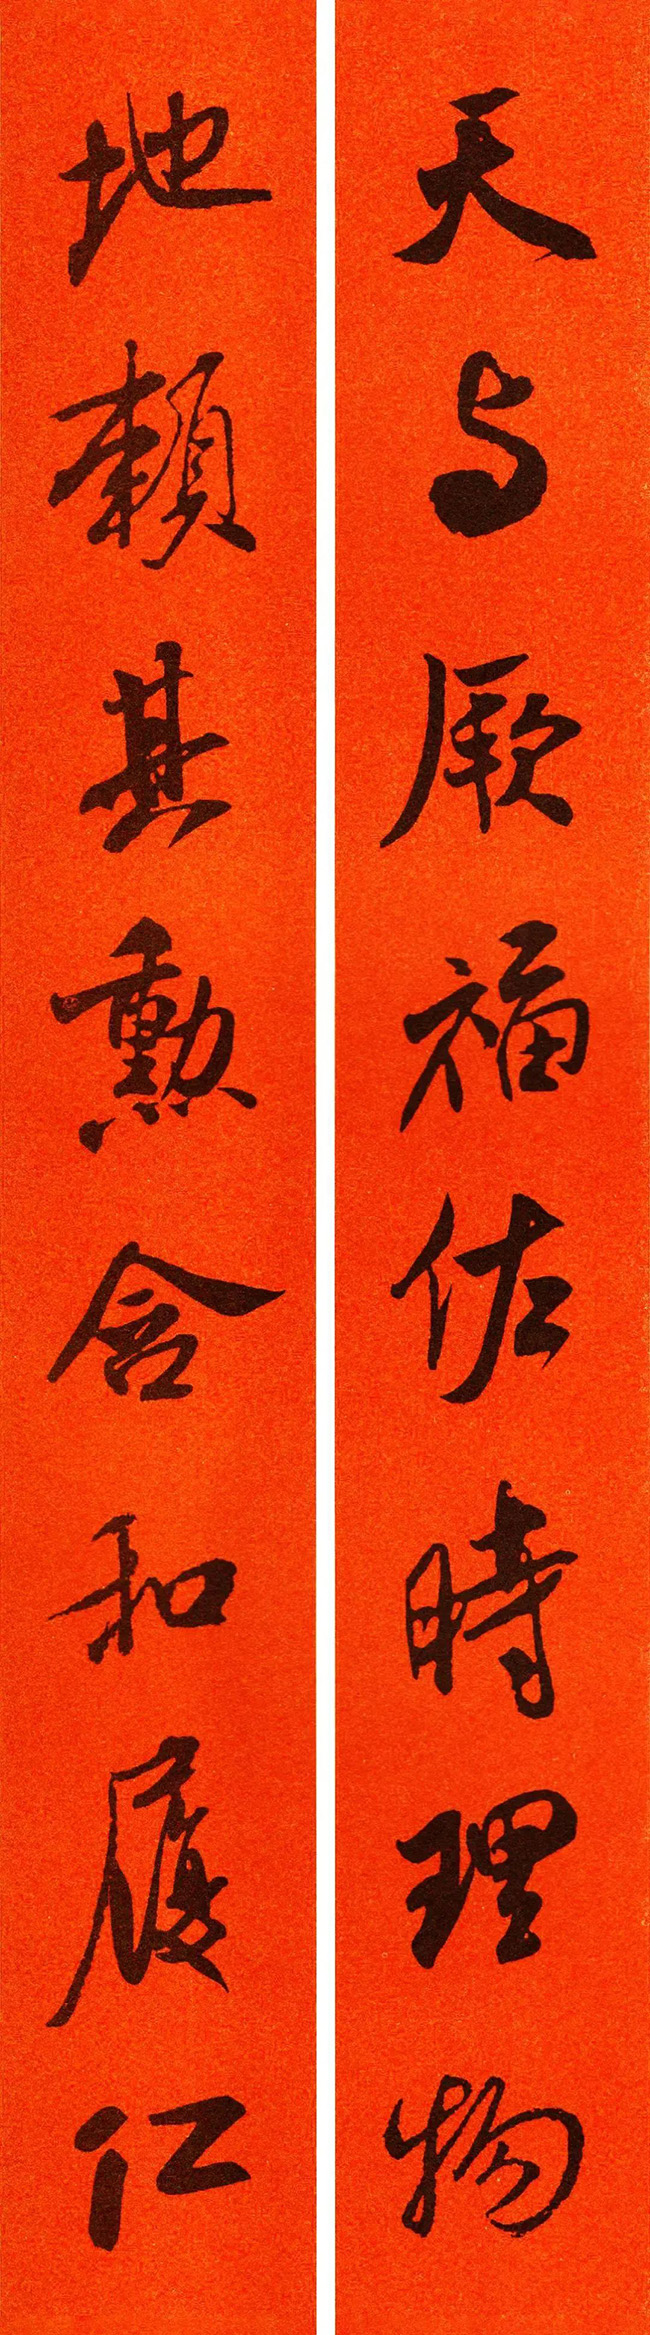 天与厥福佐時理物
地賴其勳含和履仁